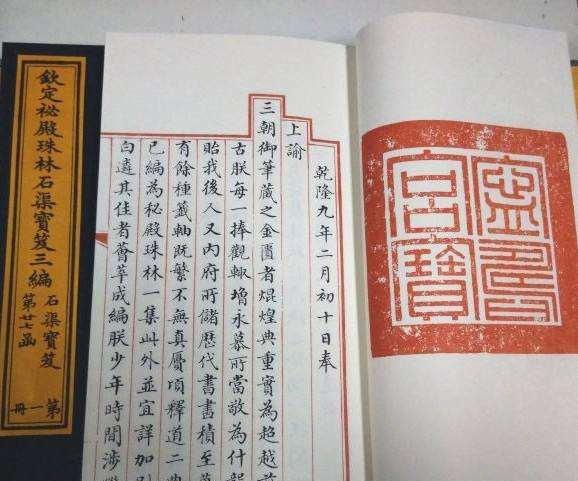 寧壽宮寶
乾隆九年二月初十日奉
上諭
三朝御筆藏之金匱者焜煌典重實為超越前
古朕每一捧觀輒增永慕所當敬為什
貽我後人又內府所儲歷代書畫積至
有餘種籤軸既繁不無真贗頃釋道二典
已編為秘殿珠林一集此外並宜詳加別
白遴其佳者薈萃成編朕少年時間涉
欽定祕殿珠林石渠寶笈三編
石渠寶笈
第廿七函
第一冊